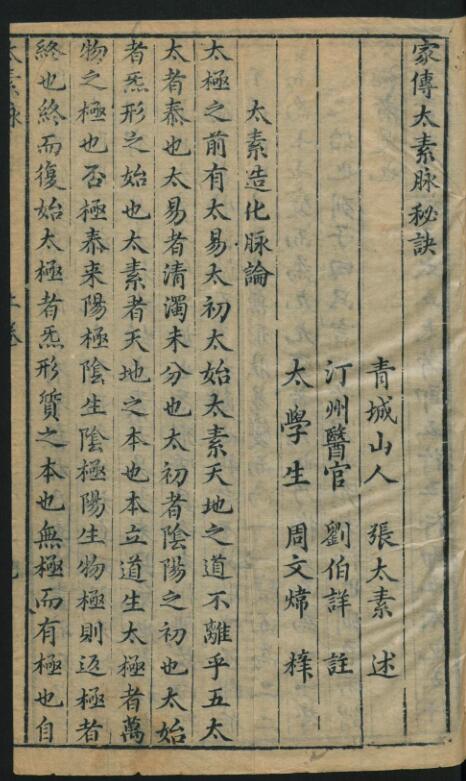 家傳太素脉秘訣
青城山人 張太素 述
汀州醫官 劉伯詳 註
太學生 周文煒 梓
太素造化脉論
太極之前有太易太初太始太素天地之道不離乎五太
太者泰也太易者清濁未分也太初者陰陽之初也太始
者炁形之始也太素者天地之本也本立道生太極者萬
物之極也否極泰来陽極陰生陰極陽生物極則返極者
終也終而復始太極者炁形質之本也無極而有極也自
太素脉 上卷